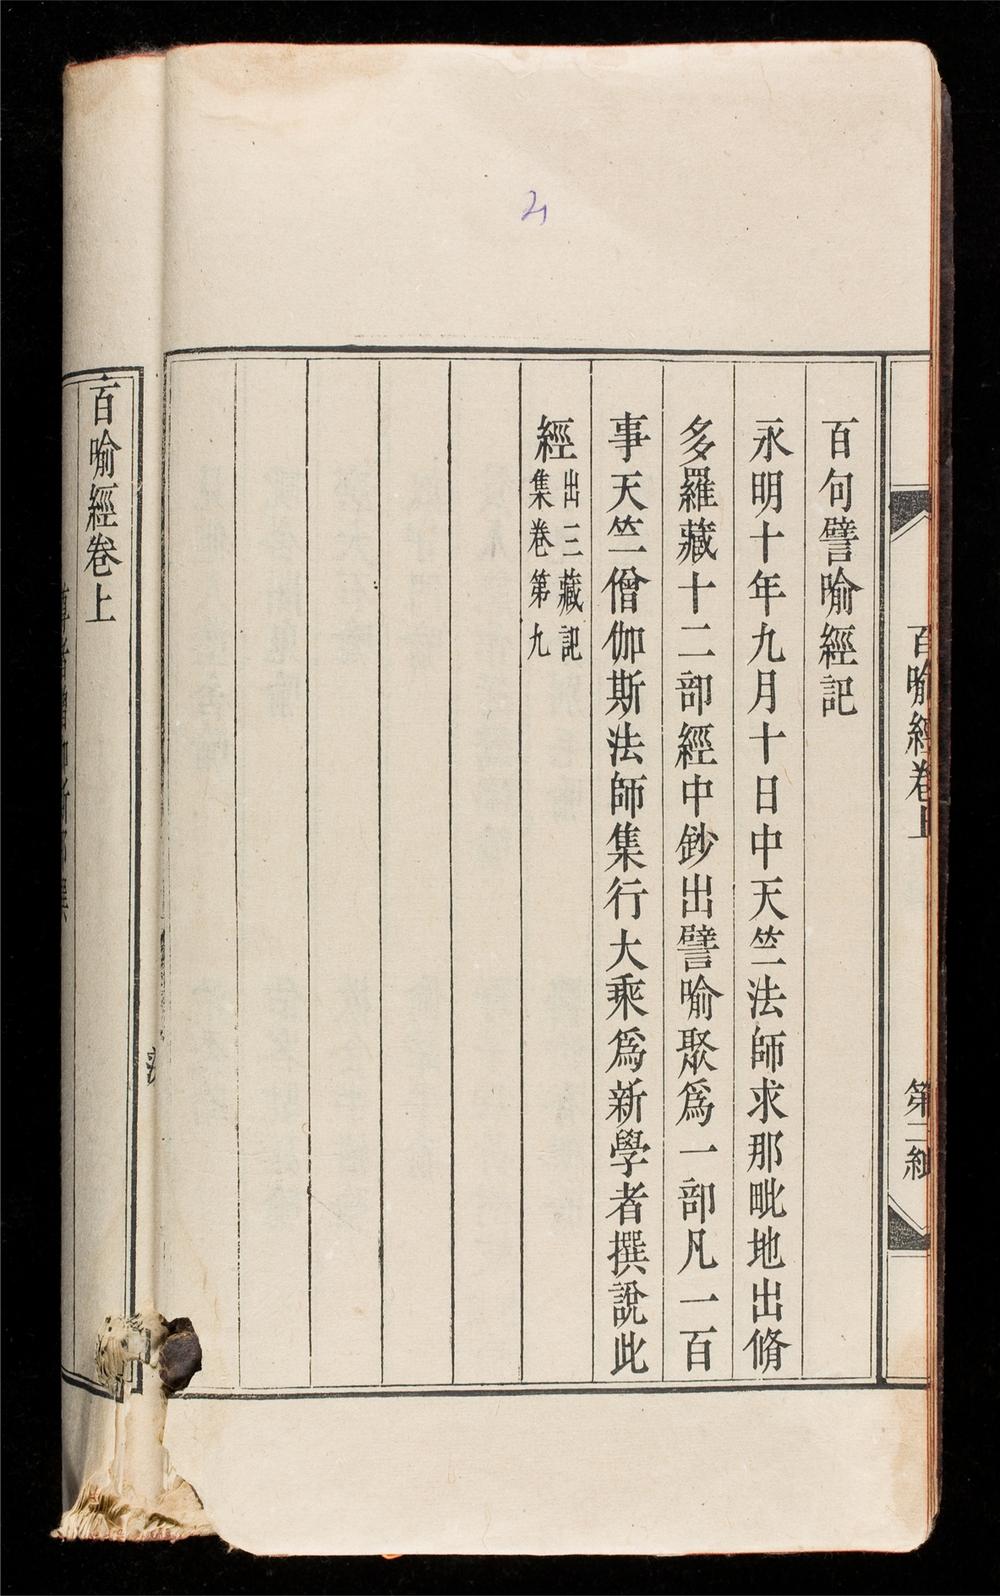 百喻經卷上
第二紙
百句譬喻經記
永明十年九月十日中天竺法師求那毗地出脩
多羅藏十二部經中鈔出譬喻聚爲一部凡一百
事天竺僧伽斯法師集行大乘爲新學者撰說此
經出三藏記
集卷第九
百喻經卷上